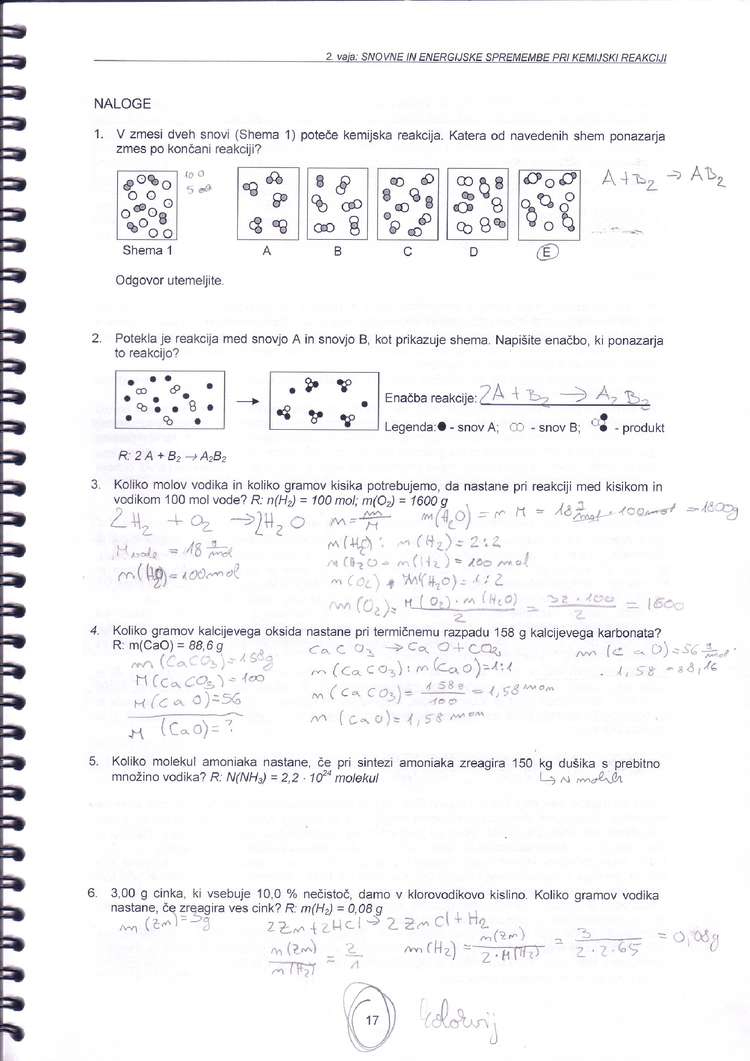 2. vaja: SNOVNE IN ENERGIJSKE SPREMEMBE PRI KEMIJSKI REAKCIJI
NALOGE
1. V zmesi dveh snovi (Shema 1) poteče kemijska reakcija. Katera od navedenih shem ponazarja
zmes po končani reakciji?
10 O
5
A + B2 → AB2
Shema 1 A B C D E
Odgovor utemeljite.
2. Potekla je reakcija med snovjo A in snovjo B, kot prikazuje shema. Napišite enačbo, ki ponazarja
to reakcijo?
Enačba reakcije: 2A + B2 → A2 B2
Legenda: - snov A; - snov B; - produkt
R: 2 A + B2 → A2B2
3. Koliko molov vodika in koliko gramov kisika potrebujemo, da nastane pri reakciji med kisikom in
vodikom 100 mol vode? R: n(H2) = 100 mol; m(O2) = 1600 g
2H2 + O2 → 2H2O n = m/M m(H2O) = n M = 18 g/mol · 100 mol = 1800g
M vode = 18 g/mol n(H2O) : n(H2) = 2:2
n(H2O) = 100 mol n(H2O = n(H2) = 100 mol
n(O2) : n(H2O) = 1:2
m(O2) = M(O2) · n(H2O) / 2 = 32 · 100 / 2 = 1600
4. Koliko gramov kalcijevega oksida nastane pri termičnemu razpadu 158 g kalcijevega karbonata?
R: m(CaO) = 88,6 g CaCO3 → CaO + CO2
m(CaCO3) = 158g n(CaCO3) : n(CaO) = 1:1 m(CaO) = 56 g/mol ·
M(CaCO3) = 100 · 1,58 = 88,16
M(CaO) = 56 n(CaCO3) = 158 / 100 = 1,58 mom
M (CaO) = ? n (CaO) = 1,58 mom
5. Koliko molekul amoniaka nastane, če pri sintezi amoniaka zreagira 150 kg dušika s prebitno
množino vodika? R: N(NH3) = 2,2 · 10^24 molekul
6. 3,00 g cinka, ki vsebuje 10,0 % nečistoč, damo v klorovodikovo kislino. Koliko gramov vodika
nastane, če zreagira ves cink? R: m(H2) = 0,08 g
m (Zn) = 3g 2Zn + 2HCl → 2ZnCl + H2
n(Zn) / n(H2) = 2 / 1 m(H2) = m(Zn) / 2 · M(H2) = 3 / 2 · 2 · 65 = 0,08g
17